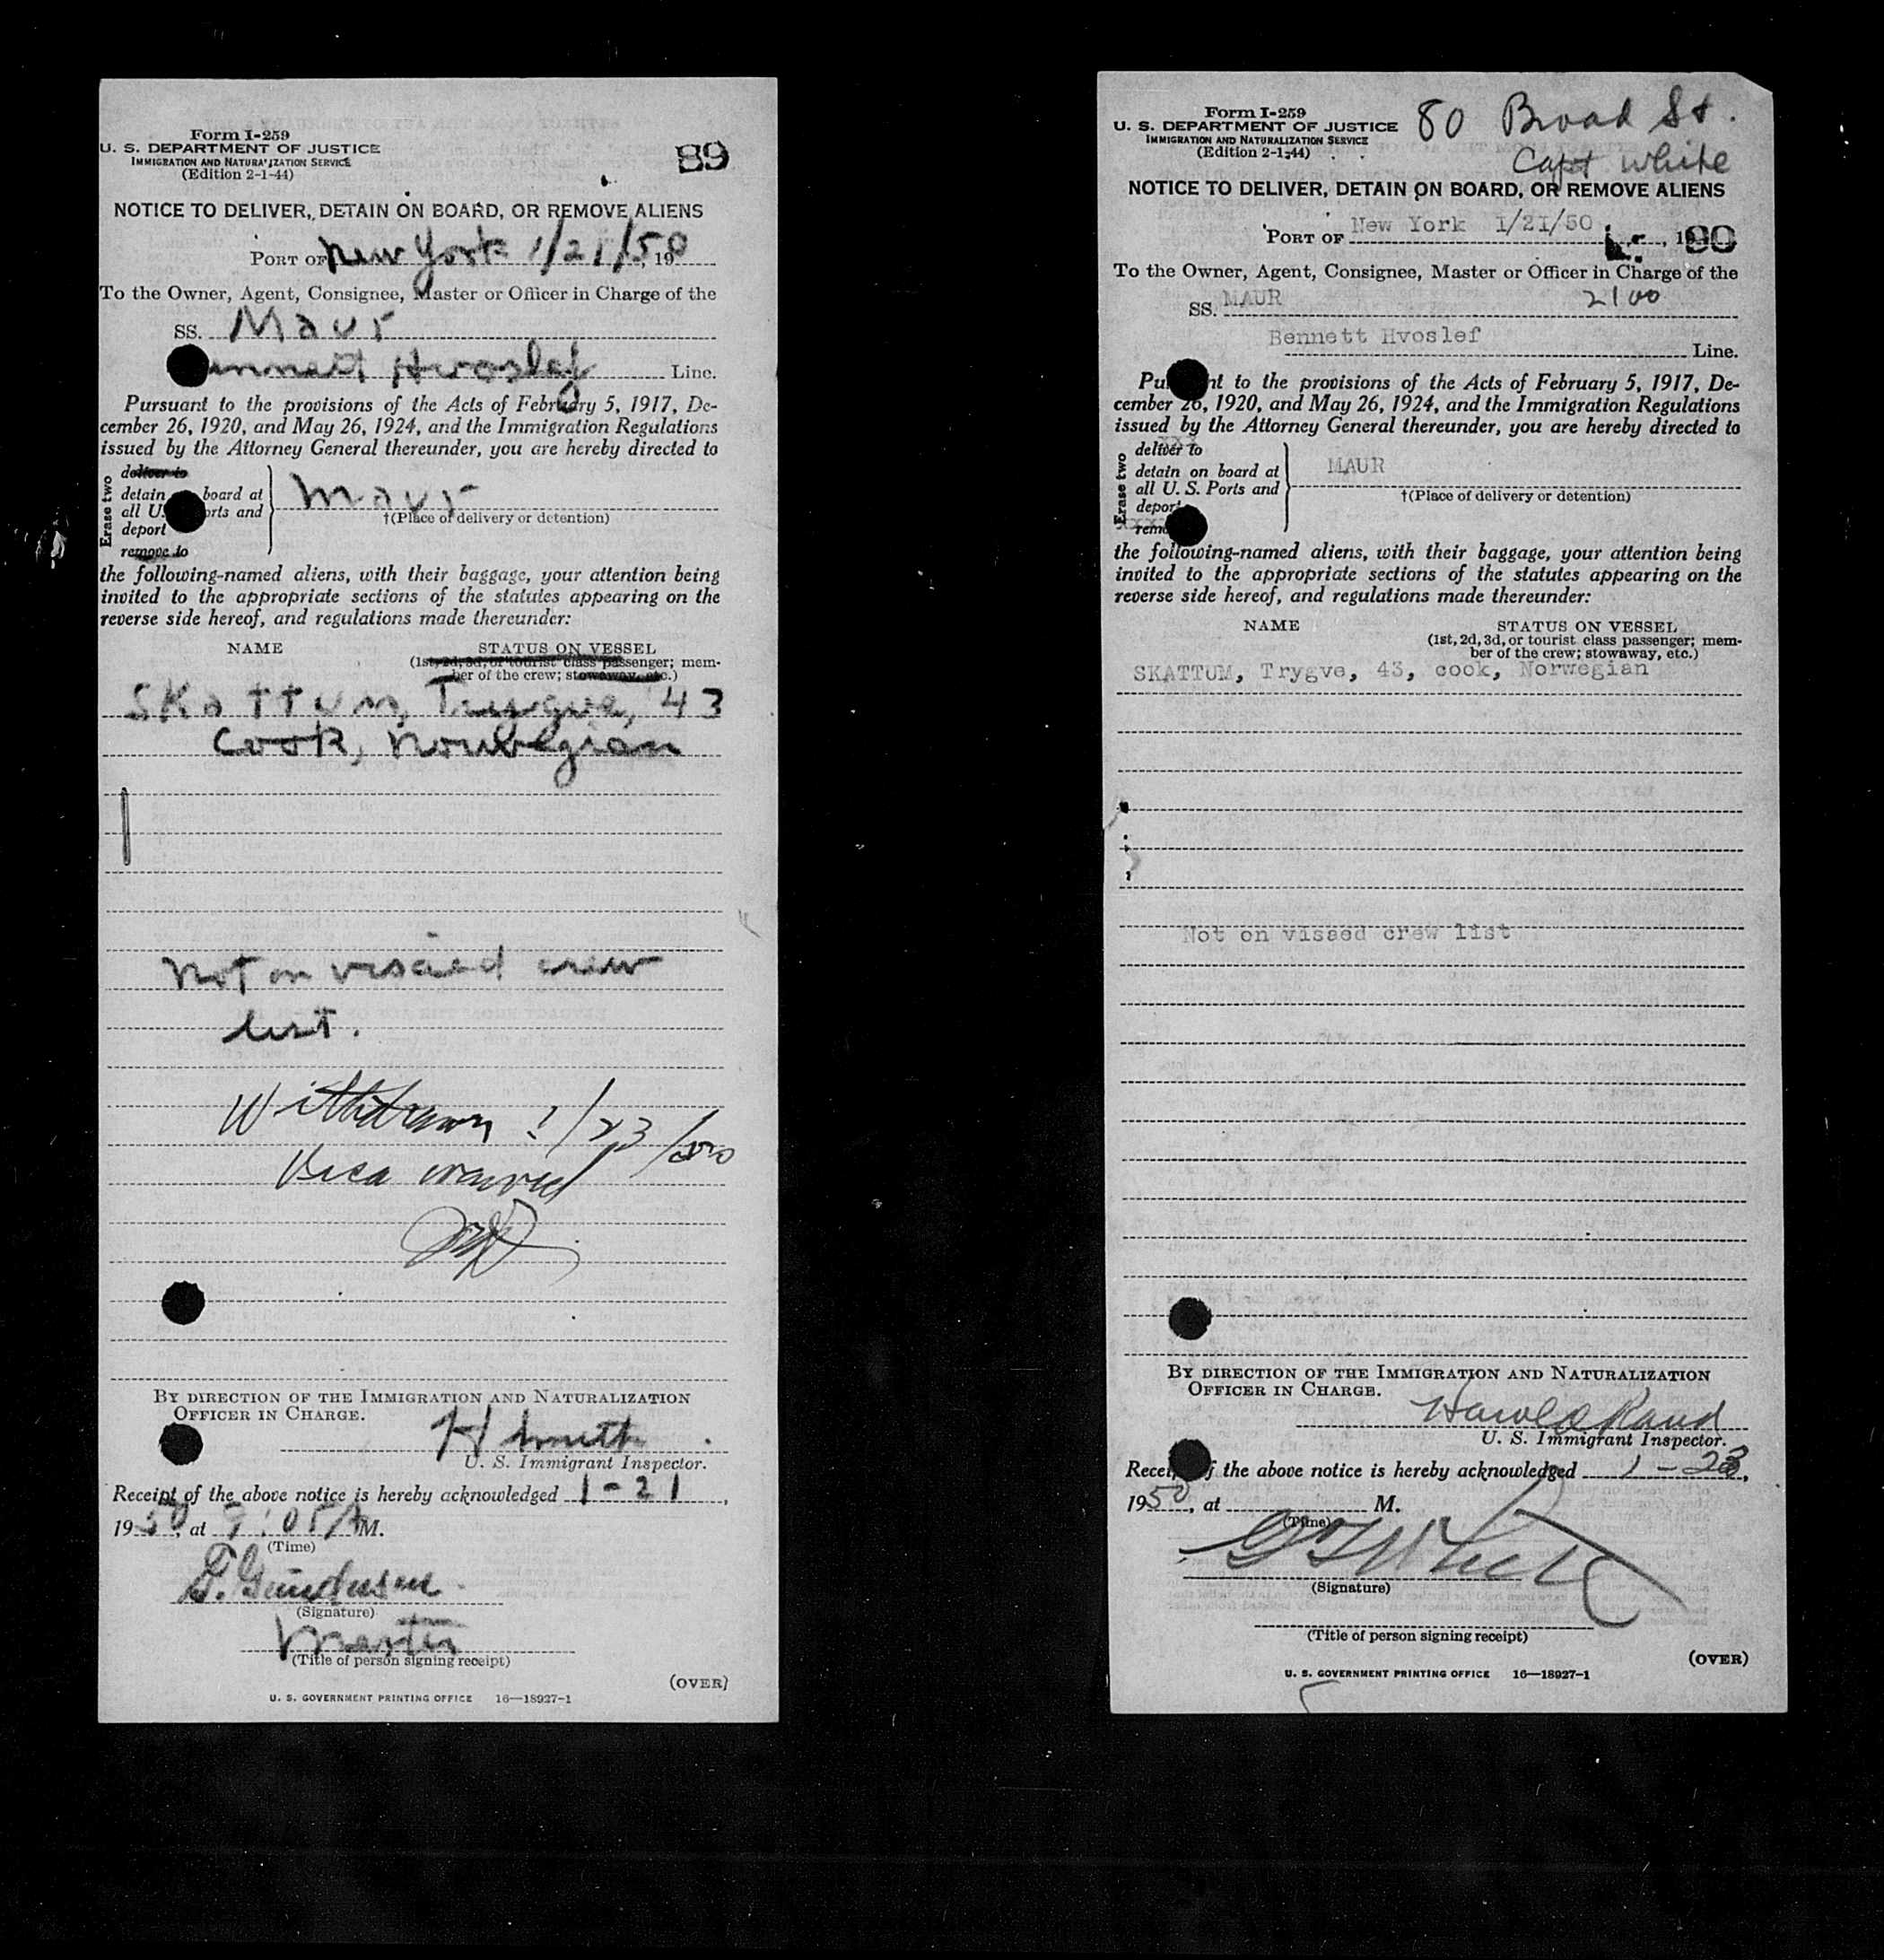 Form I-259
U. S. DEPARTMENT OF JUSTICE
IMMIGRATION AND NATURALIZATION SERVICE
(Edition 2-1-44)
89
NOTICE TO DELIVER, DETAIN ON BOARD, OR REMOVE ALIENS
PORT OF New York 1/21/50, 19
To the Owner, Agent, Consignee, Master or Officer in Charge of the
SS. Maur
nnett Hvoslef Line.
Pursuant to the provisions of the Acts of February 5, 1917, De-
cember 26, 1920, and May 26, 1924, and the Immigration Regulations
issued by the Attorney General thereunder, you are hereby directed to
Erase two
deliver to
detain board at
all U. rts and
deport
remove to
Maur
†(Place of delivery or detention)
the following-named aliens, with their baggage, your attention being
invited to the appropriate sections of the statutes appearing on the
reverse side hereof, and regulations made thereunder:
NAME STATUS ON VESSEL
(1st, 2d, 3d, or tourist class passenger; mem-
ber of the crew; stowaway, etc.)
SKattum, Trygve, 43
Cook, Norwegian
Not on visaed crew
list.
Withdrawn 1/23/50
Visa waived
BY DIRECTION OF THE IMMIGRATION AND NATURALIZATION
OFFICER IN CHARGE.
H Smith
U. S. Immigrant Inspector.
Receipt of the above notice is hereby acknowledged 1-21,
1950, at 9:05 A M.
(Time)
G. Gundersen
(Signature)
Master
(Title of person signing receipt)
(OVER)
U. S. GOVERNMENT PRINTING OFFICE 16—18927-1
Form I-259
U. S. DEPARTMENT OF JUSTICE
IMMIGRATION AND NATURALIZATION SERVICE
(Edition 2-1-44)
80 Broad St.
Capt White
NOTICE TO DELIVER, DETAIN ON BOARD, OR REMOVE ALIENS
PORT OF New York 1/21/50, 19
90
To the Owner, Agent, Consignee, Master or Officer in Charge of the
SS. MAUR 2100
Bennett Hvoslef Line.
Pu nt to the provisions of the Acts of February 5, 1917, De-
cember 26, 1920, and May 26, 1924, and the Immigration Regulations
issued by the Attorney General thereunder, you are hereby directed to
Erase two
deliver to
detain on board at
all U. S. Ports and
depor
remo
MAUR
†(Place of delivery or detention)
the following-named aliens, with their baggage, your attention being
invited to the appropriate sections of the statutes appearing on the
reverse side hereof, and regulations made thereunder:
NAME STATUS ON VESSEL
(1st, 2d, 3d, or tourist class passenger; mem-
ber of the crew; stowaway, etc.)
SKATTUM, Trygve, 43, cook, Norwegian
Not on visaed crew list
BY DIRECTION OF THE IMMIGRATION AND NATURALIZATION
OFFICER IN CHARGE.
Harold Rand
U. S. Immigrant Inspector.
Receip f the above notice is hereby acknowledged 1-23,
1950, at M.
(Time)
(Signature)
(Title of person signing receipt)
(OVER)
U. S. GOVERNMENT PRINTING OFFICE 16—18927-1